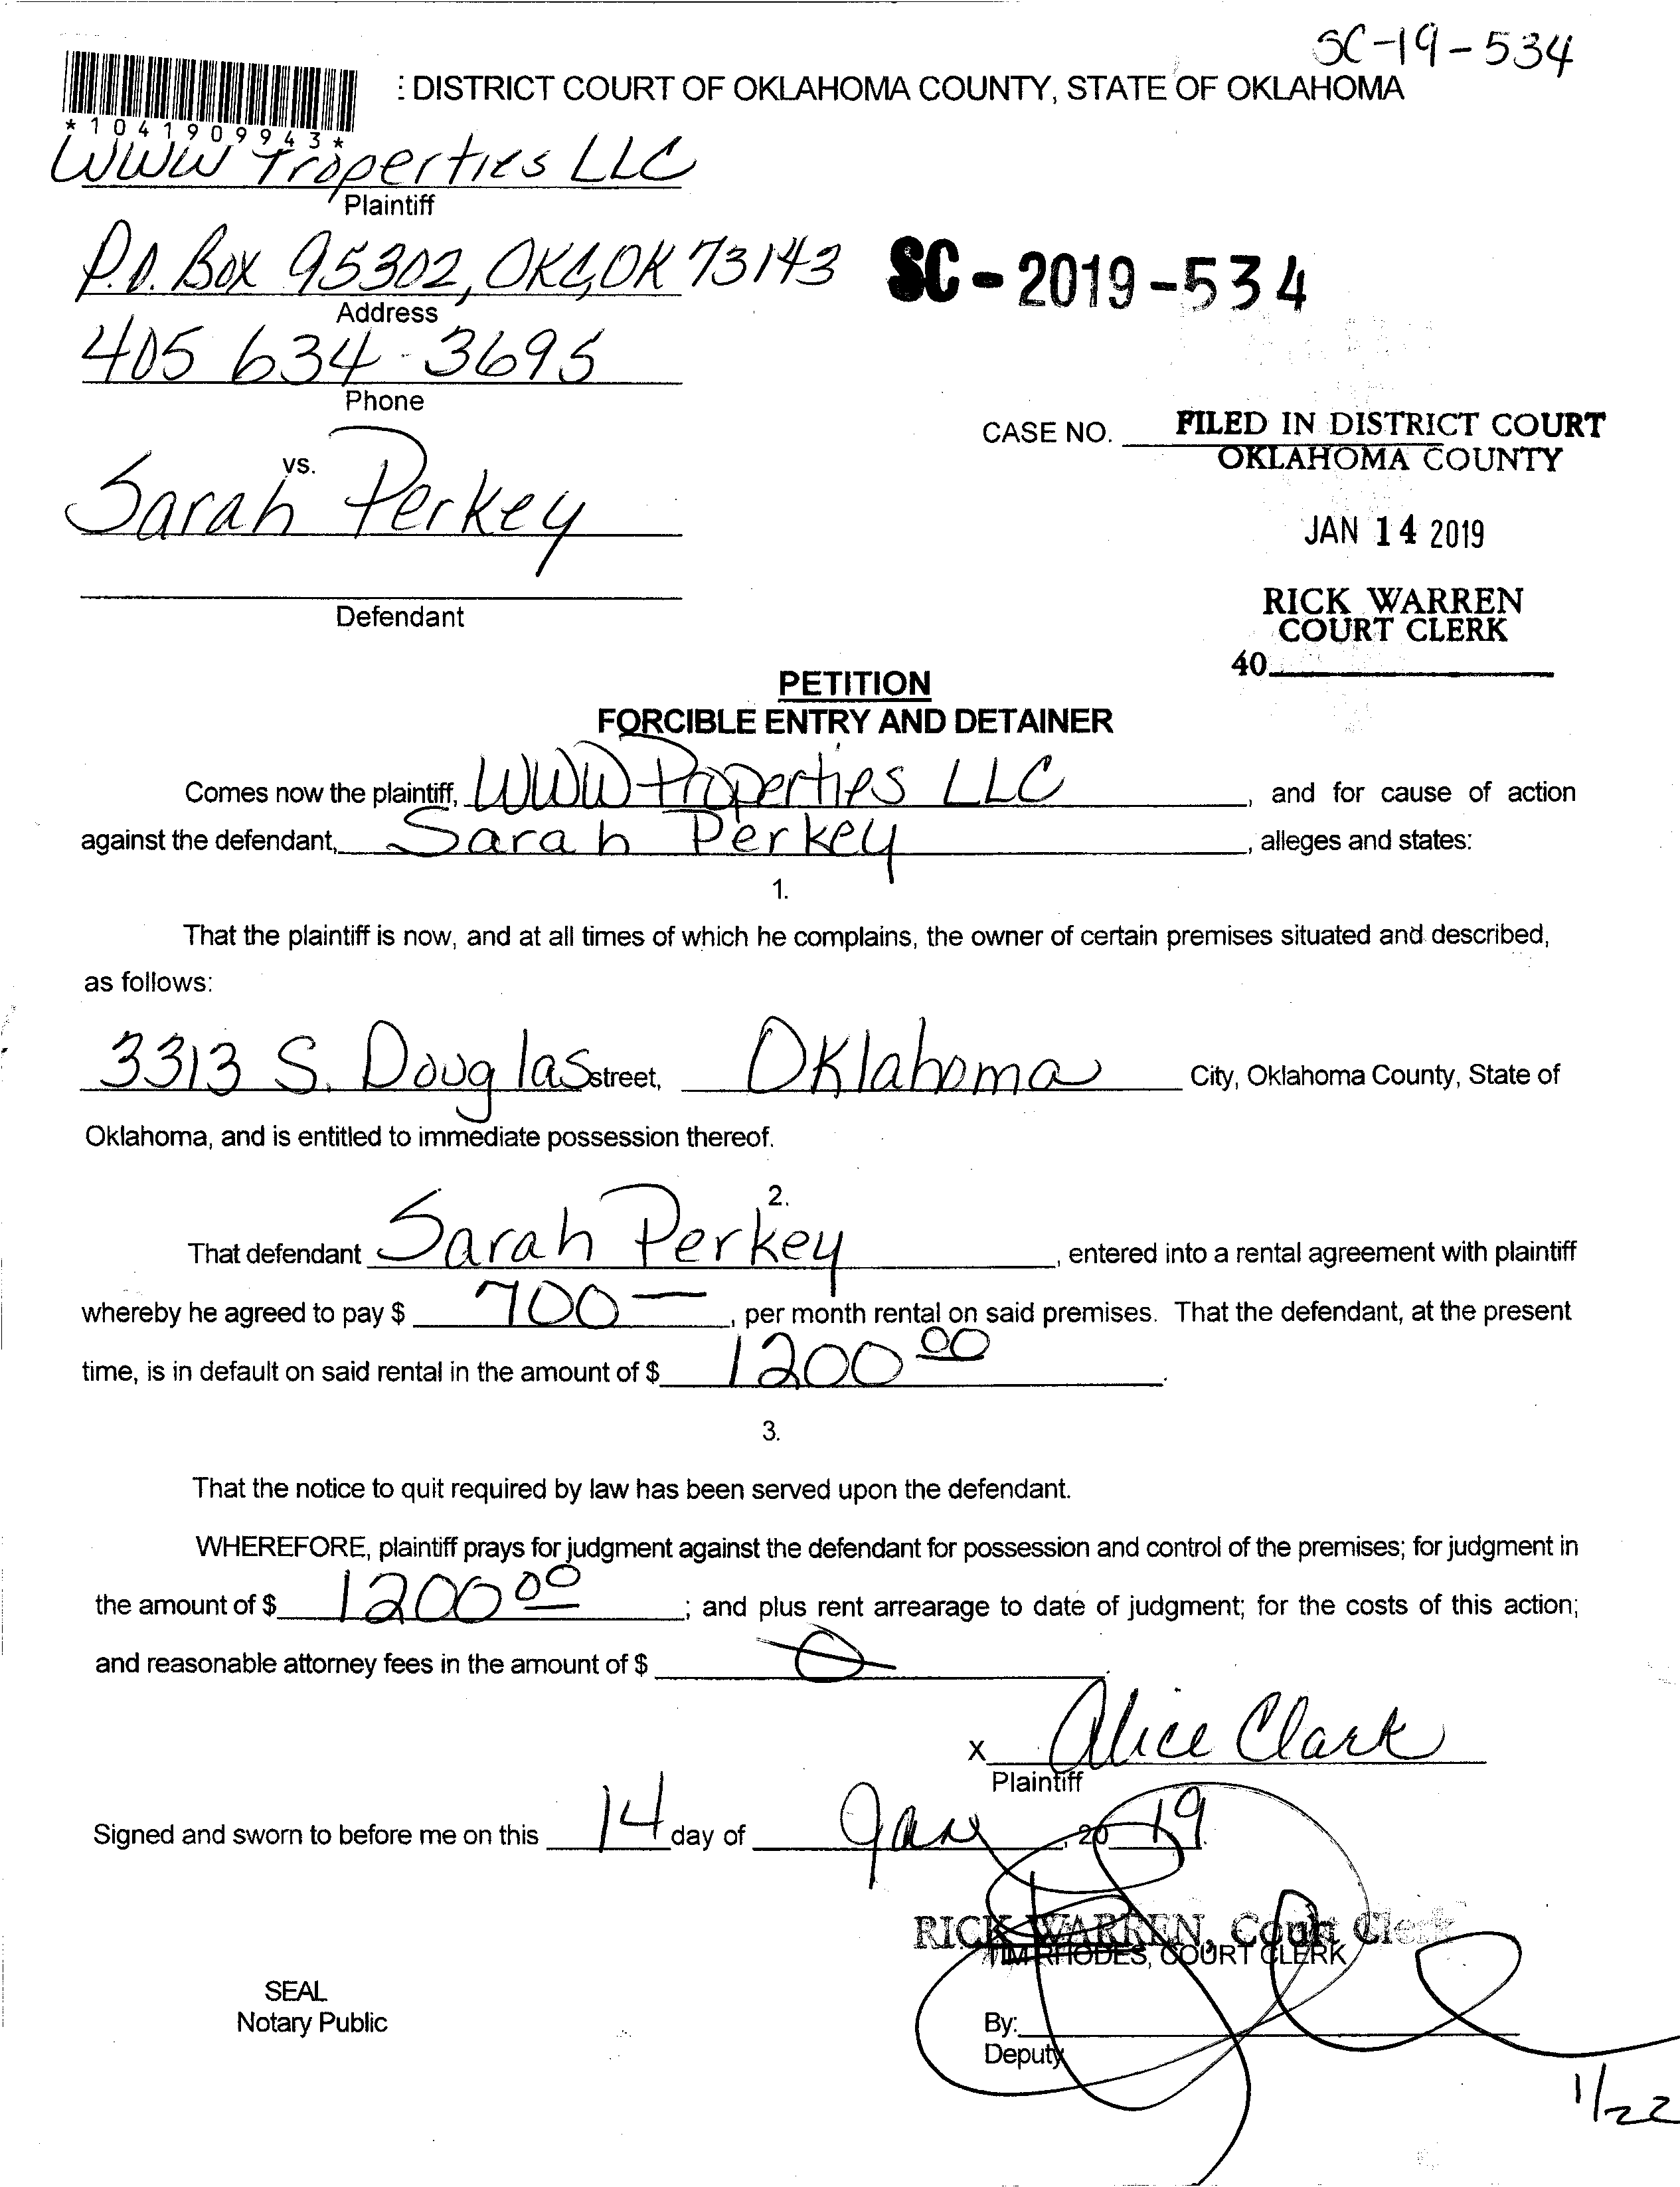 SC-19-534
: DISTRICT COURT OF OKLAHOMA COUNTY, STATE OF OKLAHOMA
*1041909943*
WWW Properties LLC
Plaintiff
P.O. Box 95302, OKC, OK 73143
SC-2019-534
Address
405 634-3695
Phone
CASE NO. FILED IN DISTRICT COURT
OKLAHOMA COUNTY
vs.
Sarah Perkey
JAN 14 2019
Defendant
RICK WARREN
COURT CLERK
40
PETITION
FORCIBLE ENTRY AND DETAINER
Comes now the plaintiff, WWW Properties LLC, and for cause of action
against the defendant, Sarah Perkey, alleges and states:
1.
That the plaintiff is now, and at all times of which he complains, the owner of certain premises situated and described,
as follows:
3313 S. Douglas street, Oklahoma City, Oklahoma County, State of
Oklahoma, and is entitled to immediate possession thereof.
2.
That defendant Sarah Perkey, entered into a rental agreement with plaintiff
whereby he agreed to pay $ 700—, per month rental on said premises. That the defendant, at the present
time, is in default on said rental in the amount of $ 1200 00.
3.
That the notice to quit required by law has been served upon the defendant.
WHEREFORE, plaintiff prays for judgment against the defendant for possession and control of the premises; for judgment in
the amount of $ 1200 00; and plus rent arrearage to date of judgment; for the costs of this action;
and reasonable attorney fees in the amount of $ 0.
x Alice Clark
Plaintiff
Signed and sworn to before me on this 14 day of Jan, 20 19.
RICK WARREN, Court Clerk
TIM RHODES, COURT CLERK
SEAL
Notary Public
By:
Deputy
1/22